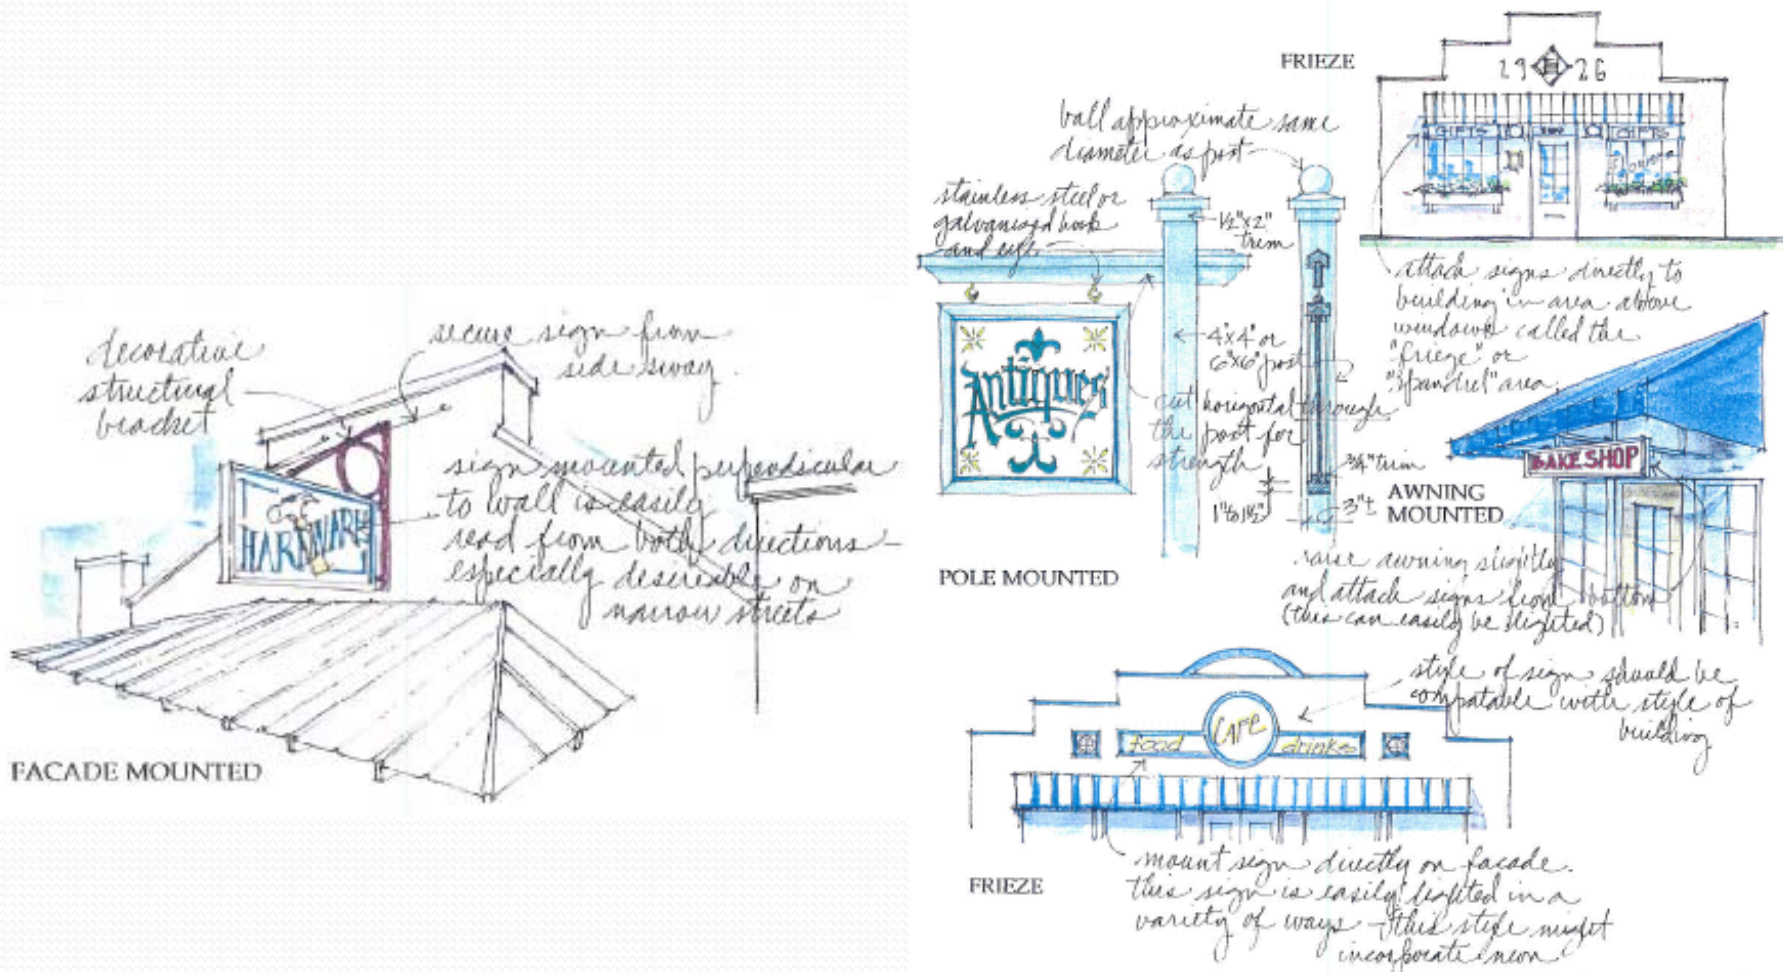 decorative
structural
bracket
secure sign from
side sway.
HARDWARE
sign mounted perpendicular
to wall is easily
read from both directions -
especially desireable on
narrow streets
FACADE MOUNTED
FRIEZE
1926
GIFTS
GIFTS
Flowers
ball approximate same
diameter as post
stainless steel or
galvanized hook
and eye
1/2"x2"
trim
Antiques
4"x4" or
6"x6" post
cut horizontal through
the post for
strength
3/4" trim
1" to 1 1/2"
3"±
POLE MOUNTED
attach signs directly to
building in area above
windows called the
"frieze" or
"spandrel" area
BAKE SHOP
AWNING
MOUNTED
raise awning slightly
and attach signs from bottom
(this can easily be lighted)
style of sign should be
compatable with style of
building
food
CAFE
drinks
FRIEZE
mount sign directly on facade.
this sign is easily lighted in a
variety of ways - this style might
incorporate neon